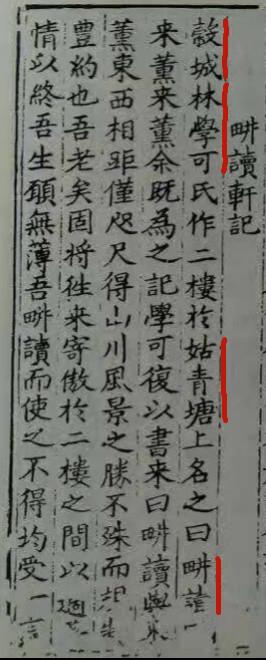 畊讀軒記
穀城林學可氏作二樓於姑青塘上名之曰畊讀
来薰来薰余既為之記學可復以書来曰畊讀與来
薰東西相距僅咫尺得山川風景之勝不殊而
豊約也吾老矣固将徃来寄傲於二樓之間以
情以終吾生願無薄吾畊讀而使之不得均受一言